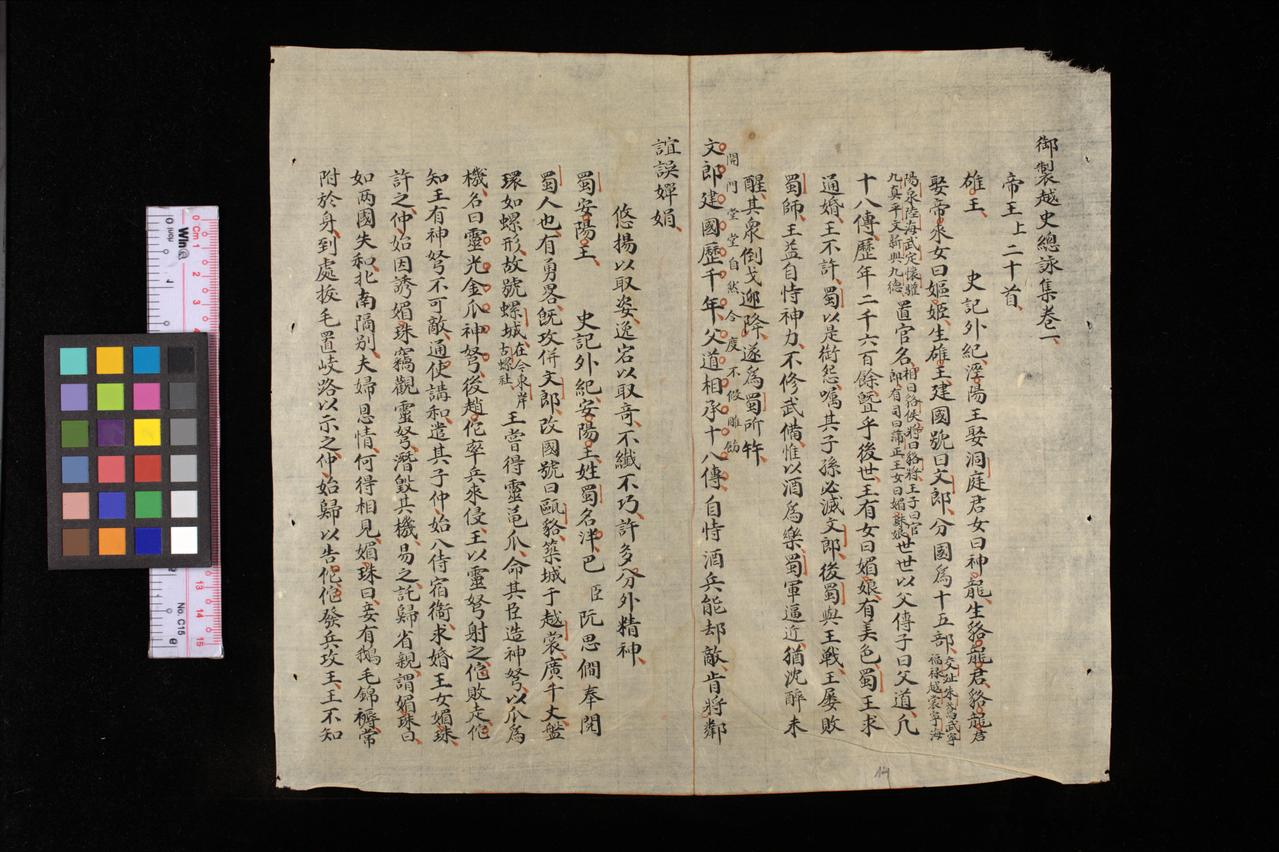 御製越史總詠集卷二
帝王上二十首
雄王 史記外紀涇陽王娶洞庭君女曰神龍生貉龍君貉龍君
娶帝來女曰嫗姬生雄王建國號曰文郎分國為十五部交趾朱鳶武寧福祿越裳寧海
陽泉陸海武定懷驩九真平文新興九德置官名相曰貉侯將曰貉將王子曰官郎有司曰蒲正王女曰媚娘世世以父傳子曰父道凡
十八傳歷年二千六百餘暨乎後世王有女曰媚娘有美色蜀王求
通婚王不許蜀以是銜怨囑其子孫必滅文郎後蜀與王戰王屢敗
蜀師王益自恃神力不修武備惟以酒為樂蜀軍逼近猶沈醉未
醒其衆倒戈迎降遂為蜀所併
開門堂堂自然合度不假雕飾
文郎建國歷千年父道相承十八傳自恃酒兵能却敵肯將鄰
誼誤嬋娟
悠揚以取姿逸宕以取奇不纖不巧許多分外精神
蜀安陽王 史記外紀安陽王姓蜀名泮巴臣阮思僩奉閱
蜀人也有勇畧旣攻併文郎改國號曰甌貉築城于越裳廣千丈盤
環如螺形故號螺城在今東岸古螺社王嘗得靈龜爪命其臣造神弩以爪為
機名曰靈光金爪神弩後趙佗率兵來侵王以靈弩射之佗敗走佗
知王有神弩不可敵通使講和遣其子仲始入侍宿衛求婚王女媚珠
許之仲始因誘媚珠竊觀靈弩潛毀其機易之託歸省親謂媚珠曰
如兩國失和北南隔別夫婦恩情何得相見媚珠曰妾有鵝毛錦褥常
附於身到處拔毛置岐路以示之仲始歸以告佗佗發兵攻王王不知
17